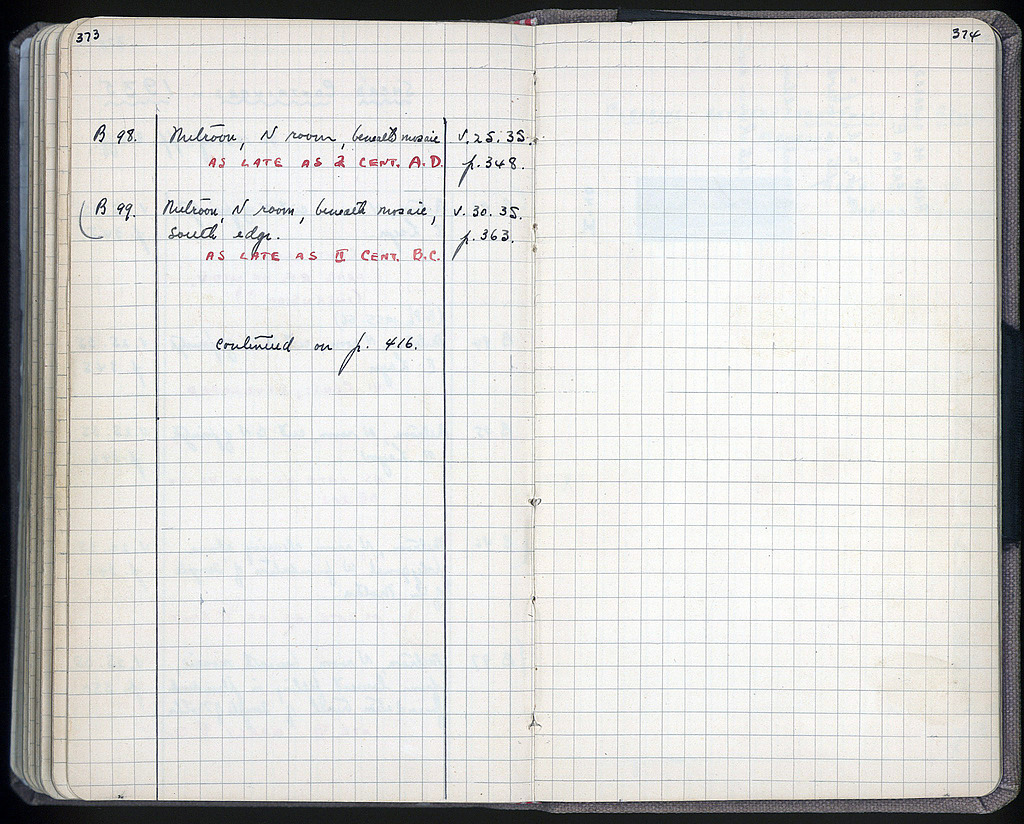 373
B 98. Metröon, N room, beneath mosaic V.25.35.
AS LATE AS 2 CENT. A.D. p.348.
B 99. Metröon, N room, beneath mosaic, V.30.35.
South edge. p.363.
AS LATE AS II CENT. B.C.
continued on p. 416.
374